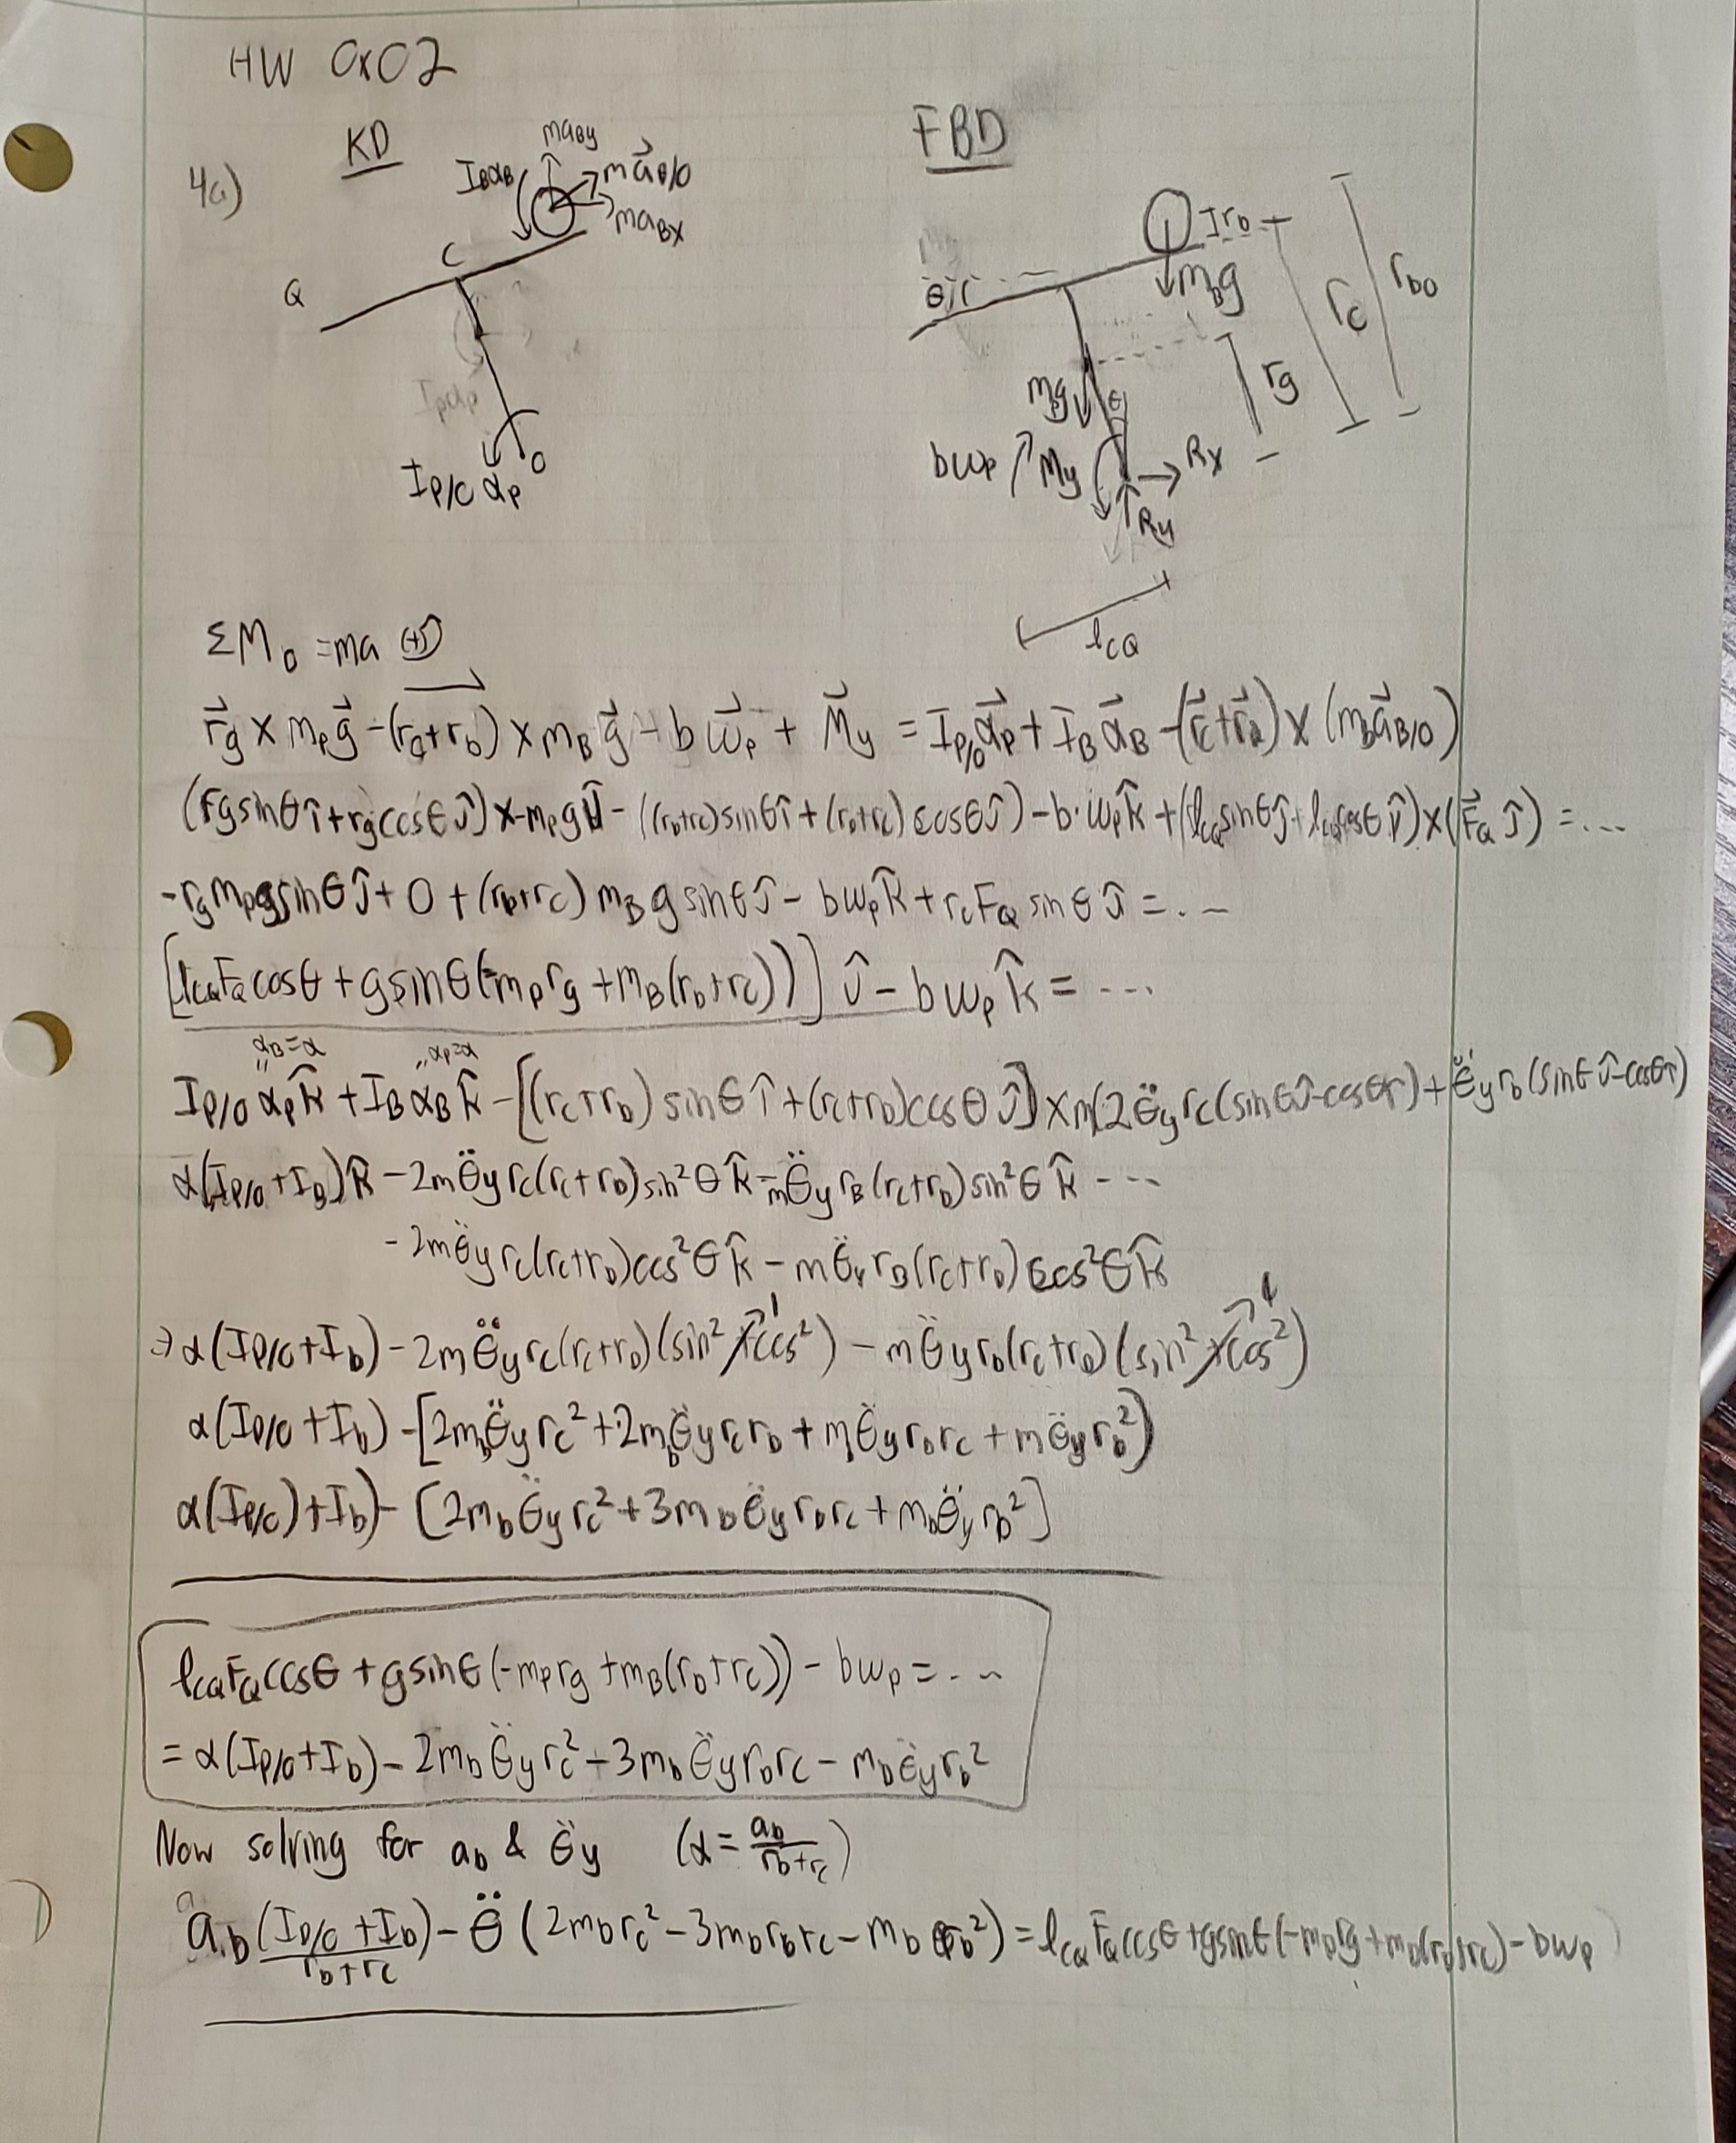 HW 0x02
4a)
KD
maBy
IBαB
ma⃗B/O
maBx
C
Q
O
Ipαp
IP/O αp
FBD
rb
mBg
θ
rc
rbo
rg
mpg
θ
bωp
My
Rx
Ry
lCQ
ΣMo = ma (+)
r⃗g × mp g⃗ - (rc + rb) × mB g⃗ - b ω⃗p + M⃗y = IP/O α⃗p + IB α⃗B - (r⃗c + r⃗B) × (mB a⃗B/O)
(rg sinθ î + rg cosθ ĵ) × -mpg ĵ - ((rb+rc) sinθ î + (rb+rc) cosθ ĵ) - b·ωp k̂ + (lCQ sinθ ĵ + lCQ cosθ î) × (F⃗Q ĵ) = ...
-rg mpg sinθ ĵ + 0 + (rb+rc) mB g sinθ ĵ - bωp k̂ + rc FQ sinθ ĵ = ...
[lCQ FQ cosθ + g sinθ (-mp rg + mB (rb+rc))] ĵ - bωp k̂ = ...
αB = α αp = α
IP/O αp k̂ + IB αB k̂ - [(rc+rb) sinθ î + (rc+rb) cosθ ĵ] × m(2θ̈y rc (sinθ ĵ - cosθ î) + θ̈y rb (sinθ ĵ - cosθ î)
α(IP/O + IB) k̂ - 2mθ̈y rc (rc+rb) sin²θ k̂ - mθ̈y rB (rc+rb) sin²θ k̂ - ...
- 2mθ̈y rc (rc+rb) cos²θ k̂ - mθ̈y rB (rc+rb) cos²θ k̂
⇒ α(IP/O + Ib) - 2mθ̈y rc (rc+rb) (sin² + cos²) 1 - mθ̈y rb (rc+rb) (sin² + cos²) 1
α(IP/O + Ib) - [2mbθ̈y rc² + 2mbθ̈y rc rb + mθ̈y rb rc + mθ̈y rb²)
α(IP/O) + Ib) - [2mbθ̈y rc² + 3mbθ̈y rb rc + mbθ̈y rb²]
lCQ FQ cosθ + g sinθ (-mp rg + mB (rb+rc)) - bωp = ...
= α(IP/O + Ib) - 2mbθ̈y rc² - 3mbθ̈y rb rc - mbθ̈y rb²
Now solving for ab & θ̈y (α = ab/(rb+rc))
ab (IP/O + Ib)/(rb+rc) - θ̈ (2mb rc² - 3mb rb rc - mb rb²) = lCQ FQ cosθ + g sinθ (-mp rg + mb (rb+rc) - bωp